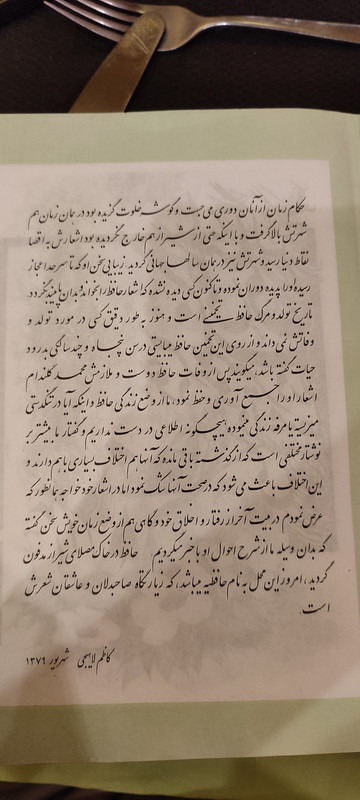 حکام زمان از آنان دوری می جست و گوشه خلوت گزیده بود در همان زمان هم
شهرتش بالا گرفت و با اینکه حتی از شیراز هم خارج نگردیده بود اشعارش به اقصا
نقاط دنیا رسید و شهرتش نیز در همان سالها جهانی گردید. زیبایی سخن او که تا سرحد اعجاز
رسیده و را پدیده دوران نموده و تاکنون کسی دیده نشده که اشعار حافظ را بخواند و بدان پایبند نگردد
تاریخ تولد و مرگ حافظ تخمینی است و هنوز به طور دقیق کسی در مورد تولد و
وفاتش نمی داند و از روی این تخمین حافظ میبایستی در سن پنجاه و چند سالگی بدرود
حیات گفته باشد، میگویند پس از وفات حافظ دوست و ملازمش محمد گلندام
اشعار او را جمع آوری و حفظ نمود، ما از وضع زندگی حافظ و اینکه آیا در تنگدستی
میزیسته یا مرفه زندگی مینموده هیچگونه اطلاعی در دست نداریم و گفتار یا بیشتر بر
نوشتار مختلفی است که از گذشته باقی مانده که آنها هم اختلاف بسیاری با هم دارند و
این اختلاف باعث می شود که در صحت آنها شک نمود اما در اشعار خود خواجه بمانطور که
عرض نمودم در بیت آخر از رفتار و اخلاق خود و گاهی هم از وضع زمان خویش سخن گفته
که بدان وسیله ما از شرح احوال او با خبر میگردیم حافظ در خاک مصلای شیراز مدفون
گردید، امروز این محل به نام حافظیه میباشد، که زیارتگاه صاحبدلان و عاشقان شعرش
است.
کاظم لایجی شهریور ۱۳۷۹